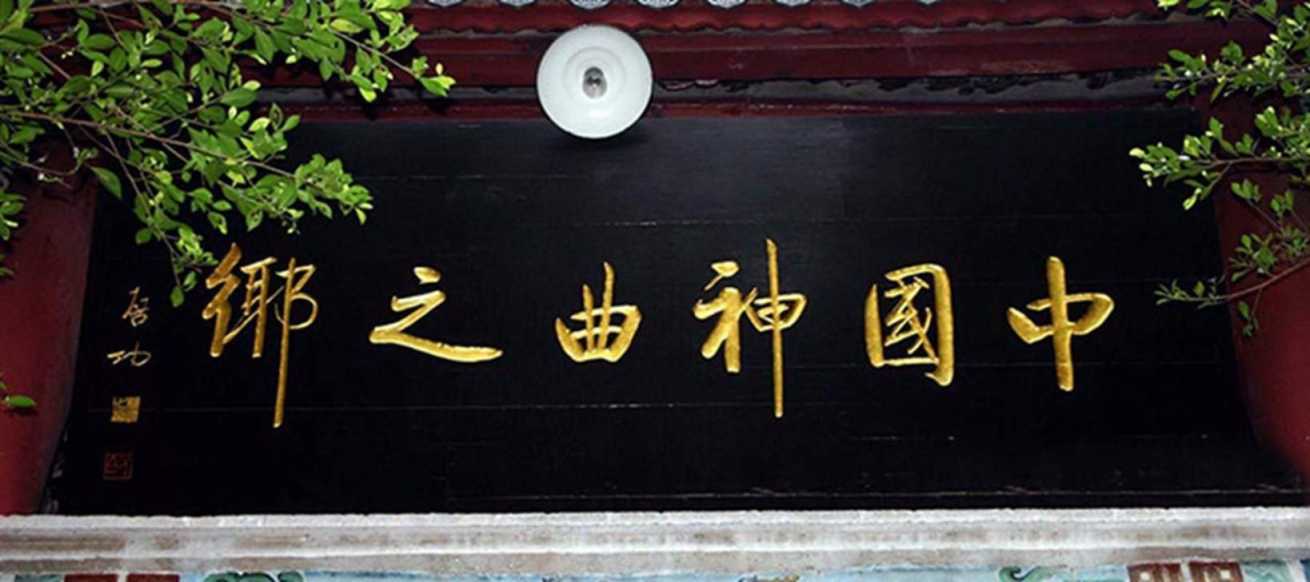 中國神曲之鄉
啓功